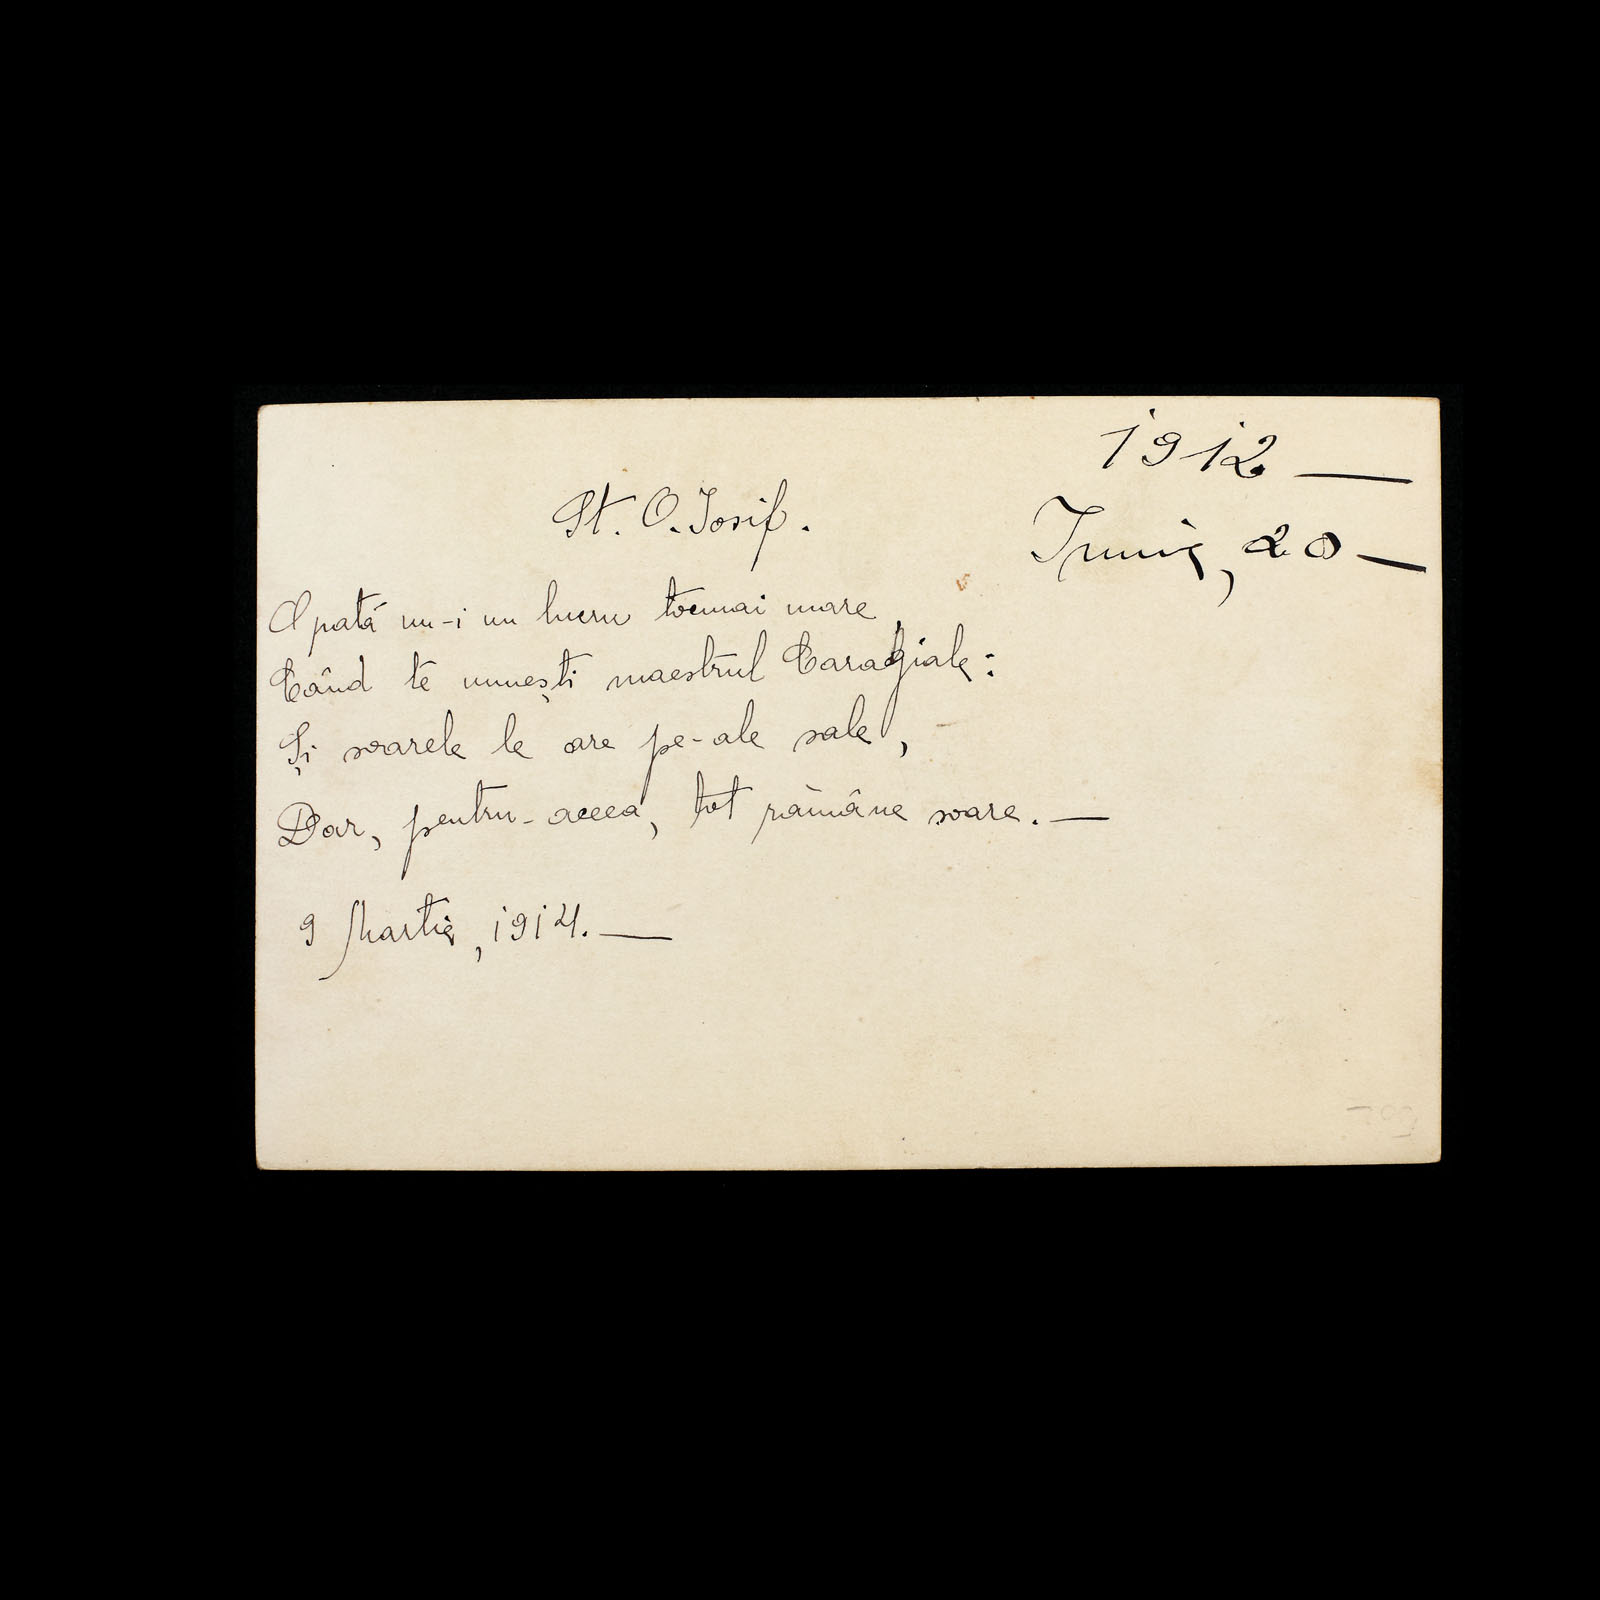 1912 —
Iunie, 20 —
St. O. Iosif.
O pată nu-i un lucru tocmai mare,
Când te numești maestrul Caragiale:
Și soarele le are pe-ale sale,
Dar, pentru-aceea, tot rămâne soare. —
9 Martie, 1914. —